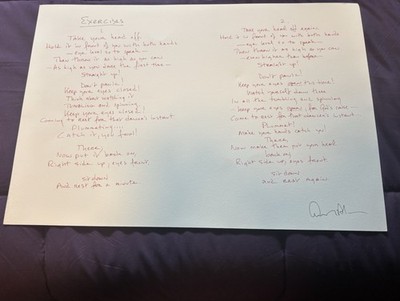 Exercises
1
Take your head off
Hold it in front of you with both hands
—eye level so to speak—
Then throw it as high as you can
—As high as you dare the first time—
Straight up!
Don't panic!
Keep your eyes closed!
Think about watching it
Tumbling and spinning
Keep your eyes closed!
Coming to rest for that dearest instant
Plummeting...
Catch it, you fool!
There,
Now put it back on,
Right side up, eyes front
Sit down
And rest for a minute
2
Take your head off again
Hold it in front of you with both hands
—eye level so to speak—
Then throw it as high as you can
—even higher than before—
Straight up!
Don't panic!
Keep your eyes open this time!
Watch yourself down there
In all the tumbling and spinning
Keep your eyes open,
Come to rest for that instant
Plummet!
Make your hands catch you!
There,
Now make them put your head
back on,
Right side up, eyes front
Sit down
And rest again